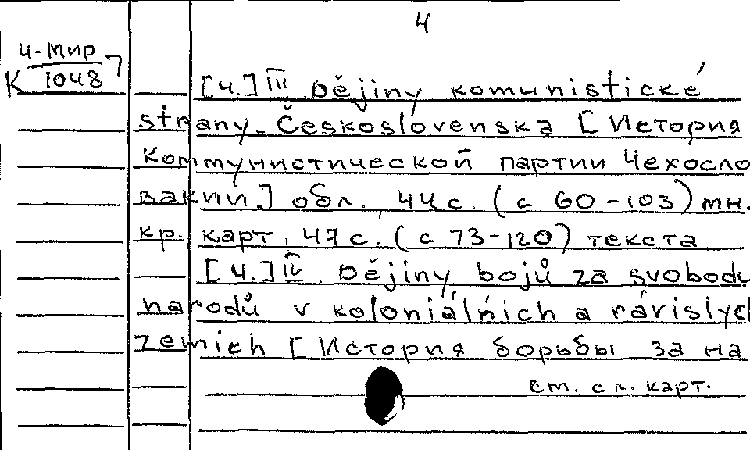 4
4-Мир
К 10487
[ч.] III Dějiny komunistické
strany Československa [История
Коммунистической партии Чехосло
вакии.] обл. 44 с. (с 60-103) мн.
кр. карт, 47 с. (с 73-120) текста
[ч.] IV Dějiny bojů za svobodu
národů v koloniálních a závislých
zemích [История борьбы за на
см. сл. карт.